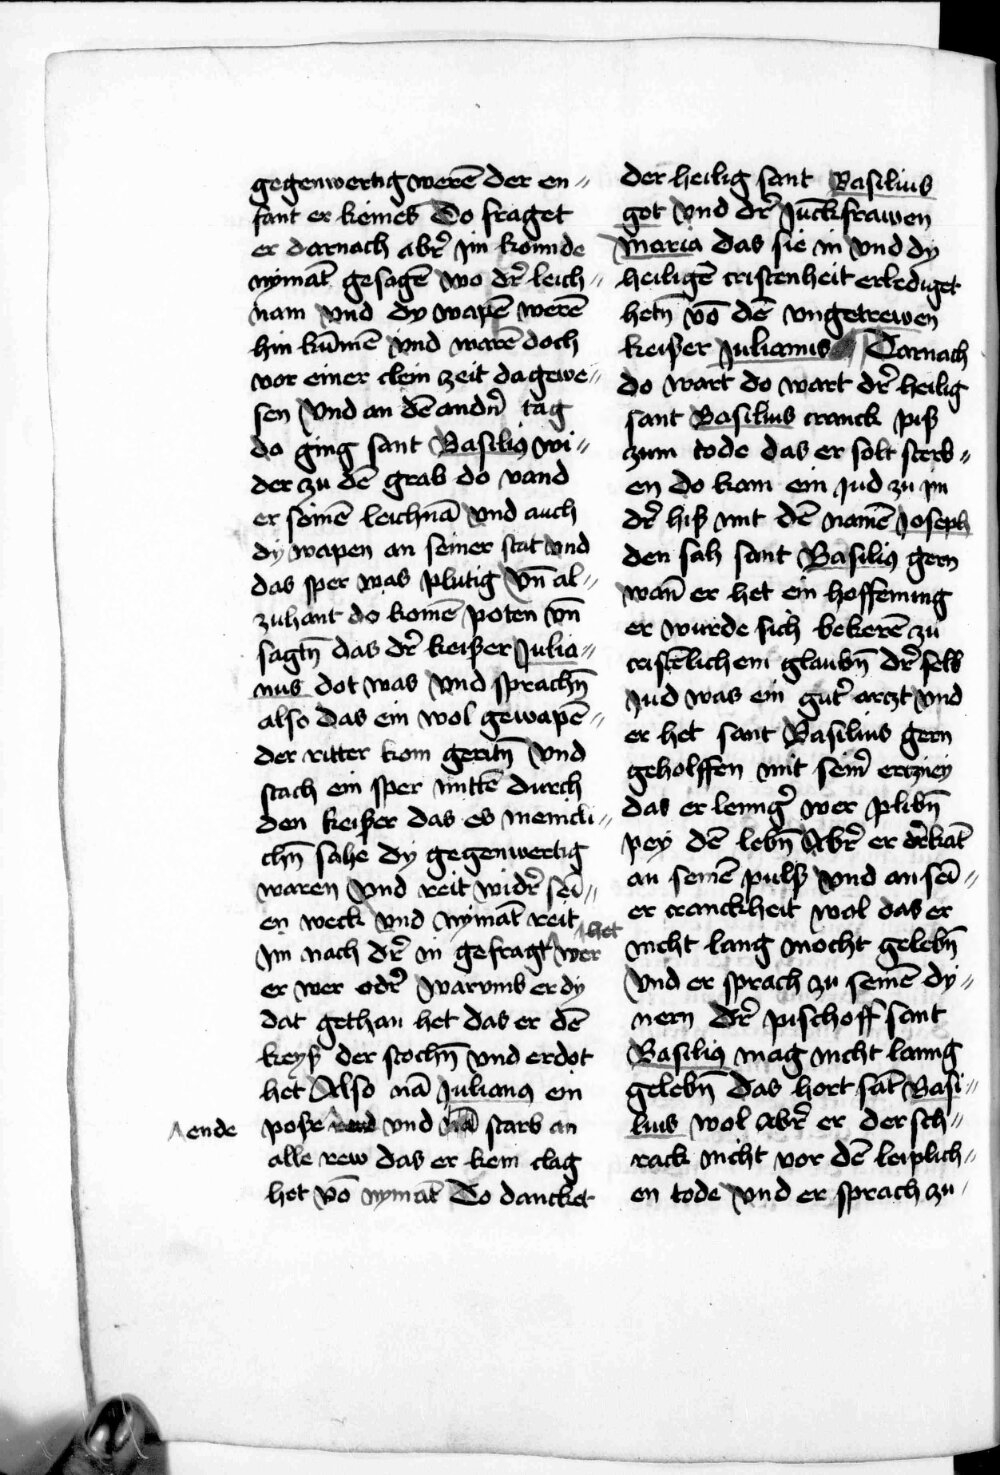 gegenwertig werē der en⸗
fant er keines Do fraget
er darnach abr̄ jm konnde
nymāt gesagē wo dr̄ leich⸗
nam vnd dy wapē werē
hin kumē vnd warē doch
vor einer clein zeit dagewe⸗
sen Vnd an dē andn̄ tag
do ging sant Basiliꝯ wi⸗
der zu dē grab do vand
er seinē leichnā vnd auch
dy wapen an seiner stat vnd
das sper was plutig vn̄ al⸗
zuhant do komē poten vn̄
sagtn̄ das dr̄ keißer Julia⸗
nus dot was vnd sprachn̄
also das ein wol gewapē⸗
der ritter kom geritn̄ vnd
stach ein sper mittē durch
den keißer das es menicli⸗
chn̄ sahe dy gegenwertig
waren vnd reit widr̄ sei⸗
en weck vnd nymāt reit
jm nach dr̄ in gefragt het wer
er wer odr̄ warvmb er dy
dat gethan het das er dē
keyß der stochn̄ vnd erdot
het Also nā Julianꝯ ein
poße ende vnd starb an
alle rew das er kein clag
het vō nymāt Do dancket
der heilig sant Basilius
got vnd dr̄ Junckfrawen
maria das sie in vnd dy
heiligē cristenheit erlediget
hetn̄ vō dē vngetrewen
keißer Julianus Darnach
do wart do wart dr̄ heilig
sant Basilius cranck piß
zum tode das er solt sterb⸗
en do kam ein Jud zu jm
dr̄ hiß mit dē namē Joseph
den sah sant Basiliꝯ gern
wan̄ er het ein hoffenung
er wurde sich bekerē zu
cristēlichem glaubn̄ dr̄ selb
Jud was ein gutr̄ arczt vnd
er het sant Basilius gern
geholffen mit seinr̄ erczney
das er lenngr̄ wer plibn̄
pey dē lebn̄ Abr̄ er dr̄kāt
an seinē pulß vnd an sei⸗
er cranckheit wol das er
nicht lang mocht gelebn̄
Vnd er sprach zu seinē dy⸗
nern dr̄ pischoff sant
Basiliꝯ mag nicht lanng
gelebn̄ das hort sāt Basi⸗
lius wol abr̄ er dersch⸗
rack nicht vor dē leiplich⸗
en tode vnd er sprach zu⸗